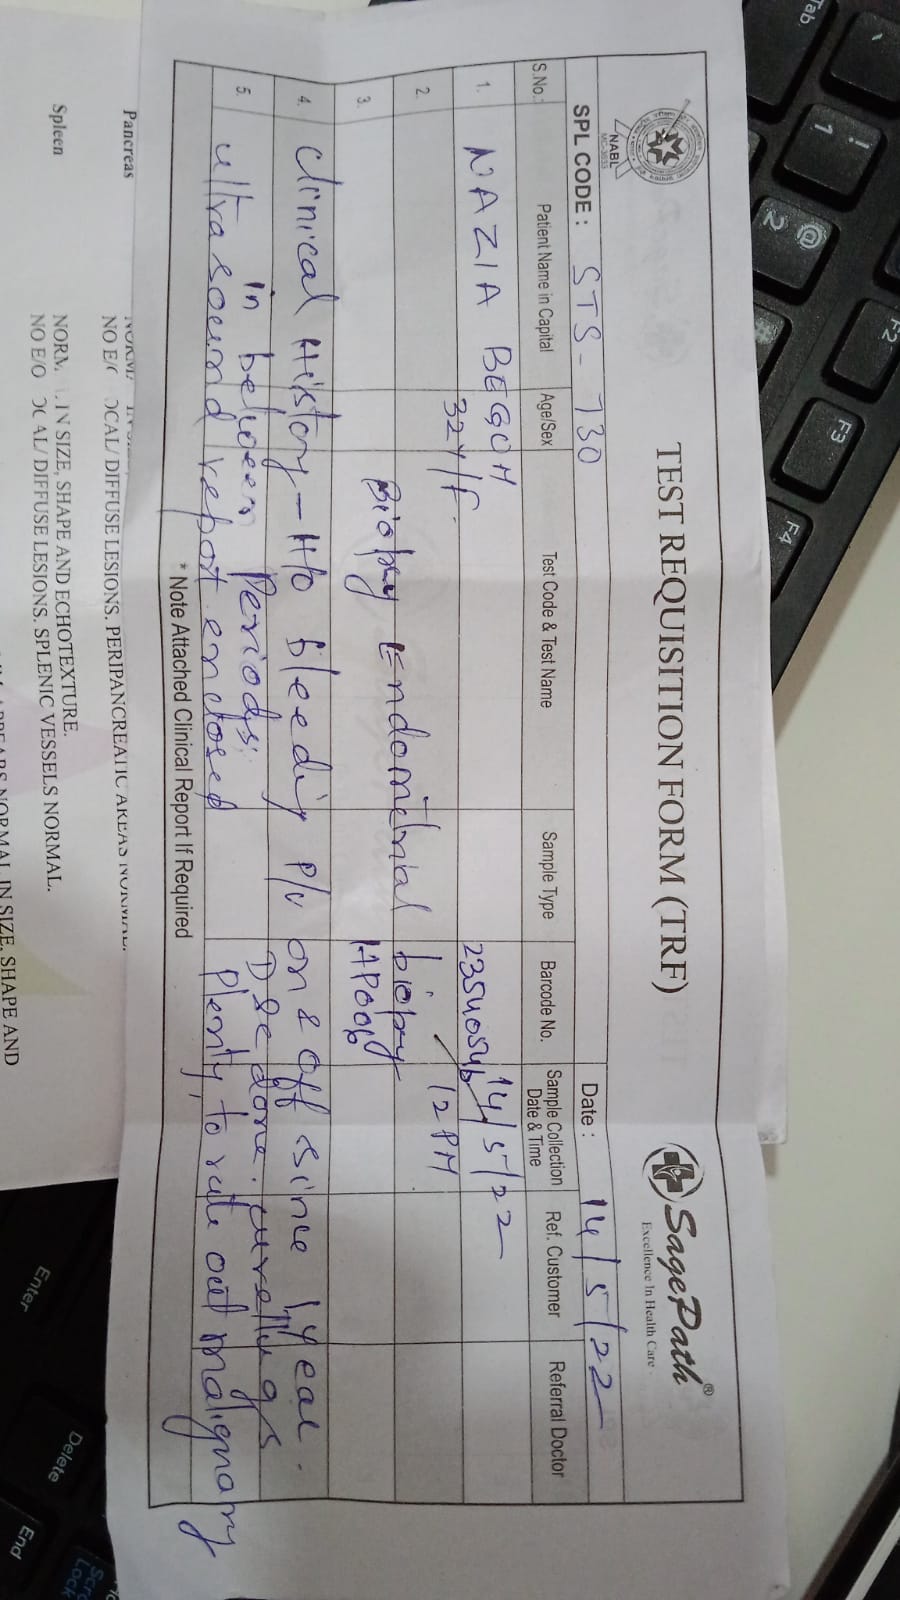 TEST REQUISITION FORM (TRF)
NABL
SagePath®
Excellence In Health Care
SPL CODE : STS - 730 Date : 14/5/22
S.No. Patient Name in Capital Age/Sex Test Code & Test Name Sample Type Barcode No. Sample Collection Date & Time Ref. Customer Referral Doctor
1. NAZIA BEGOM 32Y/F. 23540546 14/5/22
2. Biopsy Endometrial biopsy 12 PM
3. HP006
4. Clinical History - H/o bleeding P/v on & off since 1 year.
in between Periods. D&C done. curettings
5. ultrasound report enclosed Plenty, to rule out malignancy
* Note Attached Clinical Report If Required
Pancreas
NO E/O FOCAL/ DIFFUSE LESIONS. PERIPANCREATIC AREAS NORMAL.
Spleen NORM IN SIZE, SHAPE AND ECHOTEXTURE.
NO E/O OCAL/ DIFFUSE LESIONS. SPLENIC VESSELS NORMAL.
APPEARS NORMAL IN SIZE, SHAPE AND
Tab
! 1
@ 2
#
F2
F3
F4
Enter
Delete
End
Scro Lock